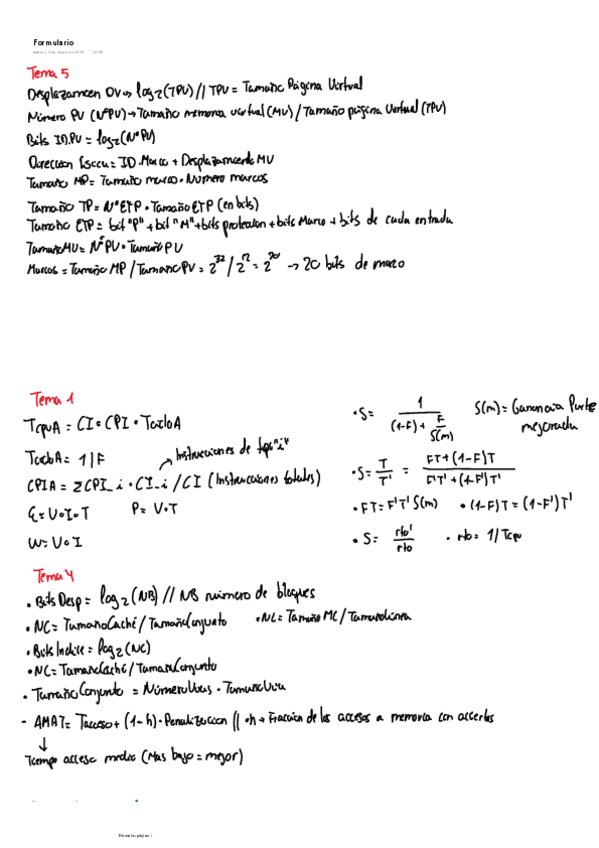 Formulario
Tema 5
Desplazamien DV → log2(TPV) // TPV = Tamaño Página Virtual
Número PV (NºPV) → Tamaño memoria virtual (MV) / Tamaño página Virtual (TPV)
Bits ID.PV = log2(NºPV)
Direccion Fisica = ID.Marco + Desplazamiento MV
Tamaño MP = Tamaño marco · Número marcos
Tamaño TP = NºETP · Tamaño ETP (en bits)
Tamaño ETP = bit "P" + bit "M" + bits proteccion + bits Marco + bits de cada entrada
Tamaño MV = NºPV · Tamaño PV
Marcos = Tamaño MP / Tamaño PV = 2^32 / 2^12 = 2^20 → 20 bits de marco
Tema 1
TcpuA = CI · CPI · TcicloA
TcicloA = 1/F
Instrucciones de tipo "i"
CPIA = ΣCPI_i · CI_i / CI (Instrucciones totales)
E = V·I·T P = V·T
W = V·I
· S = 1 / ((1-F) + F/S(m)) S(m) = Ganancia Parte mejorada
· S = T/T' = (FT + (1-F)T) / (F'T' + (1-F')T')
· FT = F'T'S(m) · (1-F)T = (1-F')T'
· S = rto'/rto · rto = 1/Tcpu
Tema 4
· Bits Desp = log2(NB) // NB número de bloques
· NC = TamañoCaché / TamañoConjunto · NL = Tamaño MC / TamañoLinea
· Bits Indice = log2(NC)
· NC = TamañoCaché / TamañoConjunto
· TamañoConjunto = NúmeroVias · TamañoVia
- AMAT = Tacceso + (1-h) · Penalizacion // · h → Fraccion de los accesos a memoria con aciertos
↓
Tiempo acceso medio (Mas bajo = mejor)
Formulas página 1